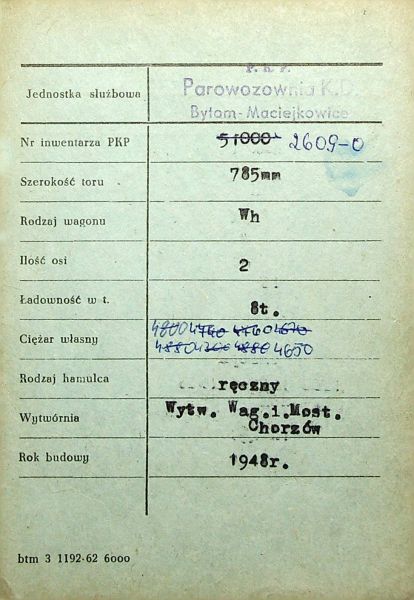 P. K. P.
Parowozownia K.D.
Bytom-Maciejkowice
Jednostka służbowa
Nr inwentarza PKP 51000 2609-0
Szerokość toru 785mm
Rodzaj wagonu Wh
Ilość osi 2
Ładowność w t. 8t.
Ciężar własny 4800 4740 4760 4670
4880 4200 4880 4650
Rodzaj hamulca ręczny
Wytwórnia Wytw. Wag.i.Most.
Chorzów
Rok budowy 1948r.
btm 3 1192-62 6000